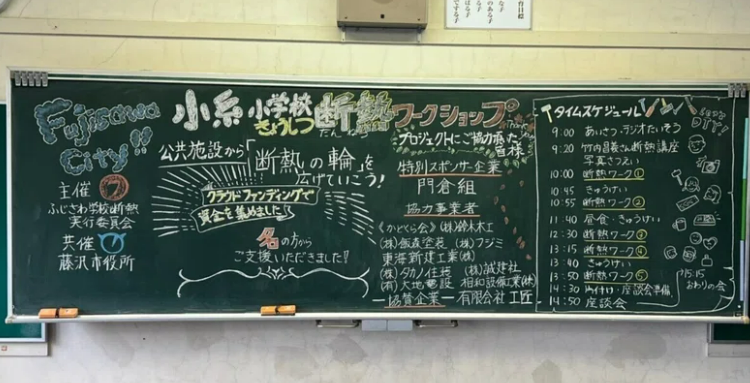 Fujisawa
City!!
主催
ふじさわ学校断熱
実行委員会
共催
藤沢市役所
小糸小学校断熱ワークショップ
きょうしつ だんねつ
公共施設から「断熱の輪」を
広げていこう!
クラウドファンディングで
資金を集めました!
名の方から
ご支援いただきました!!
プロジェクトにご協力頂いた
皆様
特別スポンサー企業
門倉組
協力事業者
《かどくら会》(株)鈴木木工
(株)飯森塗装 (株)フジミ
東海新建工業(株)
(株)タカノ住装 (株)誠建社
(有)大地電設 相和設備工業(株)
―協賛企業― 有限会社 工匠
タイムスケジュール
Let's
DIY!
9:00 あいさつ・ラジオたいそう
9:20 竹内昌義さん断熱講座
写真さつえい
10:00 断熱ワーク①
10:45 きゅうけい
10:55 断熱ワーク②
11:40 昼食・きゅうけい
12:30 断熱ワーク③
13:15 断熱ワーク④
13:40 きゅうけい
13:50 断熱ワーク⑤
14:30 片付け・座談会準備
14:50 座談会
15:15
おわりの会